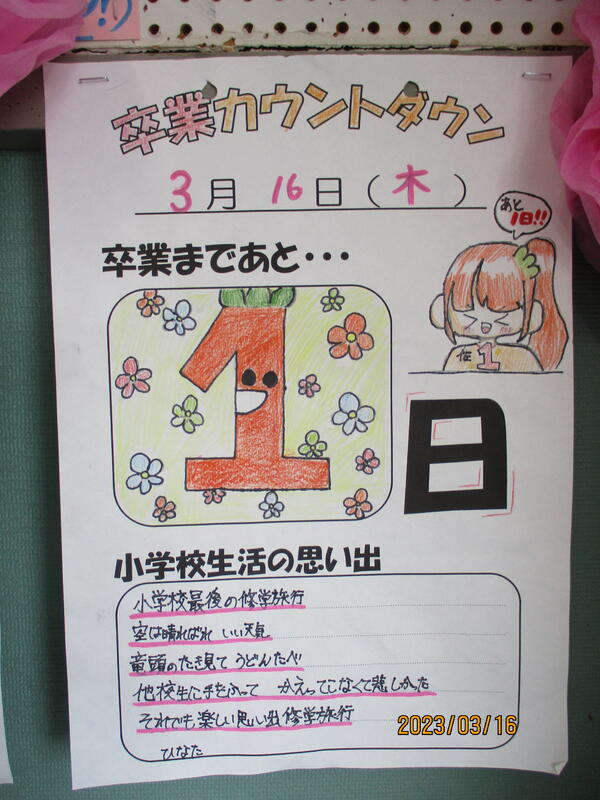 卒業カウントダウン
3月 16日(木)
あと
1日!!
卒業まであと・・・
1
日
小学校生活の思い出
小学校最後の修学旅行
空は晴ればれ いい天気
竜頭のたき見て うどんたべ
他校生に手をふって かえってこなくて悲しかった
それでも楽しい思い出修学旅行
ひなた
2023/03/16